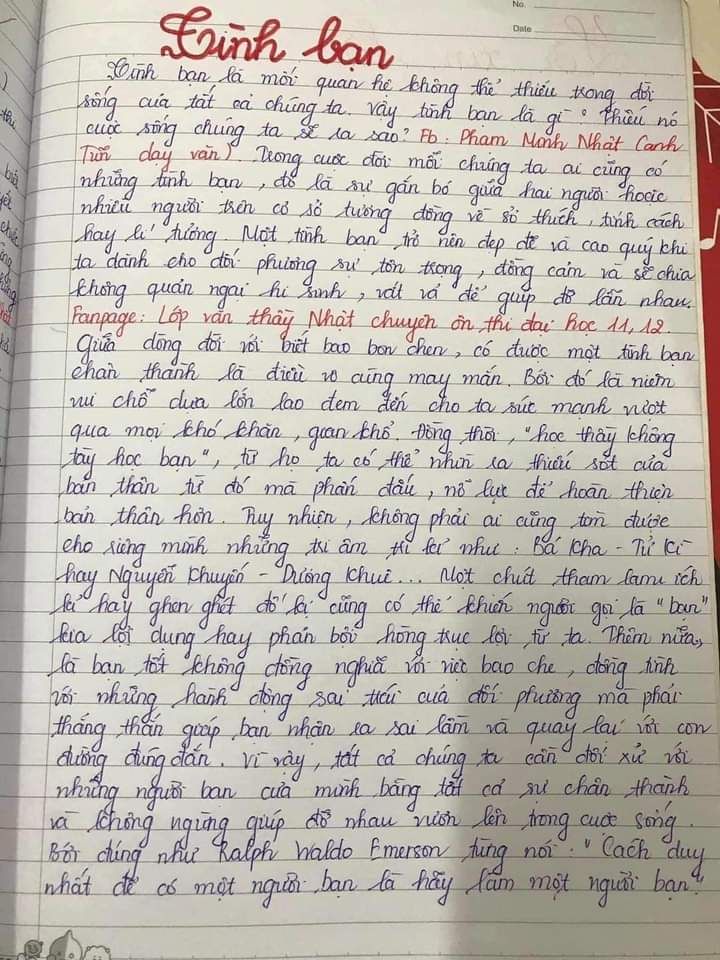 No.
Date
Tình bạn
Tình bạn là mối quan hệ không thể thiếu trong đời
sống của tất cả chúng ta. Vậy tình bạn là gì? Thiếu nó
cuộc sống chúng ta sẽ ra sao? Fb: Phạm Minh Nhật (anh
Tiến dạy văn). Trong cuộc đời mỗi chúng ta ai cũng có
những tình bạn, đó là sự gắn bó giữa hai người hoặc
nhiều người trên cơ sở tương đồng về sở thích, tính cách
hay lí tưởng. Một tình bạn trở nên đẹp đẽ và cao quý khi
ta dành cho đối phương sự tôn trọng, đồng cảm và sẻ chia
không quản ngại hi sinh, vất vả để giúp đỡ lẫn nhau.
Fanpage: Lớp văn thầy Nhật chuyên ôn thi đại học 11, 12.
Giữa dòng đời với biết bao bon chen, có được một tình bạn
chân thành là điều vô cùng may mắn. Bởi đó là niềm
vui chỗ dựa lớn lao đem đến cho ta sức mạnh vượt
qua mọi khó khăn, gian khổ. Đồng thời, "học thầy không
tày học bạn", từ họ ta có thể nhìn ra thiếu sót của
bản thân từ đó mà phấn đấu, nỗ lực để hoàn thiện
bản thân hơn. Tuy nhiên, không phải ai cũng tìm được
cho riêng mình những tri âm tri kỉ như: Bá Nha - Tử Kì
hay Nguyễn Khuyến - Dương Khuê... Một chút tham lam ích
kỉ hay ghen ghét đố kị cũng có thể khiến người gọi là "bạn"
kia lợi dụng hay phản bội hòng trục lợi từ ta. Thêm nữa,
là bạn tốt không đồng nghĩa với việc bao che, đồng tình
với những hành động sai trái của đối phương mà phải
thẳng thắn giúp bạn nhận ra sai lầm và quay lại với con
đường đúng đắn. Vì vậy, tất cả chúng ta cần đối xử với
những người bạn của mình bằng tất cả sự chân thành
và không ngừng giúp đỡ nhau vươn lên trong cuộc sống.
Bởi đúng như Ralph Waldo Emerson từng nói: "Cách duy
nhất để có một người bạn là hãy làm một người bạn"